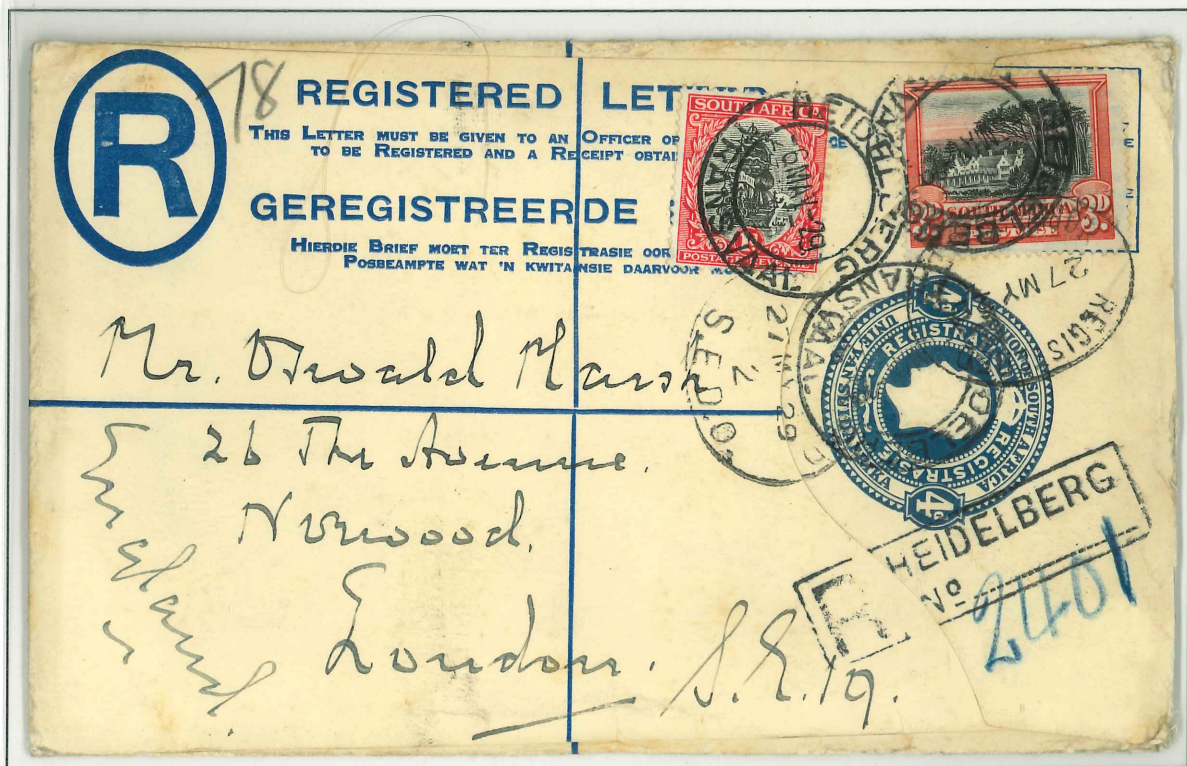 R
78
REGISTERED LET
THIS LETTER MUST BE GIVEN TO AN OFFICER OF
TO BE REGISTERED AND A RECEIPT OBTAI
GEREGISTREERDE
HIERDIE BRIEF MOET TER REGISTRASIE OOR
POSBEAMPTE WAT 'N KWITANSIE DAARVOOR
SOUTH AFRICA
POSTAGE REVENUE
HEIDELBERG
TRANSVAAL
3D SOUTH AFRICA 3D
POSTAGE
27 MY
REGIS
21 MY 29
2
S.E.D.O.
4D
UNION OF SOUTH AFRICA
REGISTRATION
REGISTRASIE
4D
Mr. Oswald Marsh
26 The Avenue.
Norwood.
London. S.E.19.
England.
R HEIDELBERG
No 2401